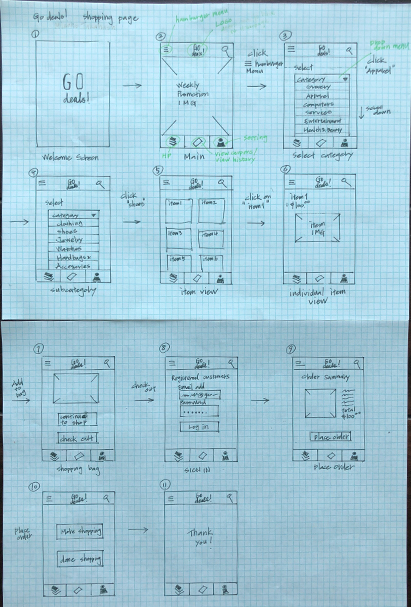 Go deals! shopping page
① 
GO
deals!
Welcome Screen
②
hamburger menu
Go
deals!
Weekly
Promotion
IMG
HP
Main
Setting
view coupons/
view history
click
≡ hamburger
Menu
③
Go
deals!
drop
down menu
Select
Category ▼
Grocery
Apparel
Computers
Services
Entertainment
Health & Beauty
Select category
click
"Apparel"
scroll
down
④
Go
deals!
Select
Category ▼
Clothing
Shoes
Jewelry
Handbags
Accesories
subcategory
click
⑤
Go
deals!
item1
item2
item3
item4
item5
item6
item view
click on
"item1"
⑥
Go
deals!
item1
item
IMG
individual item
view
Add
to
bag
⑦
Go
deals!
continue
to shop
check out
shopping bag
check
out
⑧
Go
deals!
Registered customers
email add
Password
Log in
SIGN IN
⑨
Go
deals!
Order Summary
total
Place order
Place order
place
order
⑩
Go
deals!
More shopping
done shopping
⑪
Go
deals!
Thank
you!